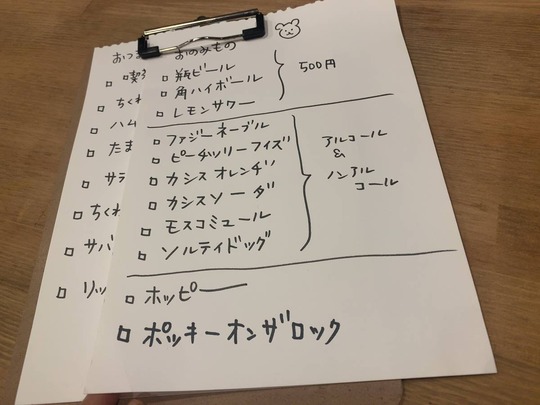 おつま
おのみもの
喫茶
ちくわ
ハム
たま
サラ
ちくわ
サバ
リッ
瓶ビール
角ハイボール
レモンサワー
500円
ファジーネーブル
ピーチツリーフィズ
カシスオレンヂ
カシスソーダ
モスコミュール
ソルティドッグ
アルコール
&
ノンアル
コール
ホッピー
ポッキーオンザロック